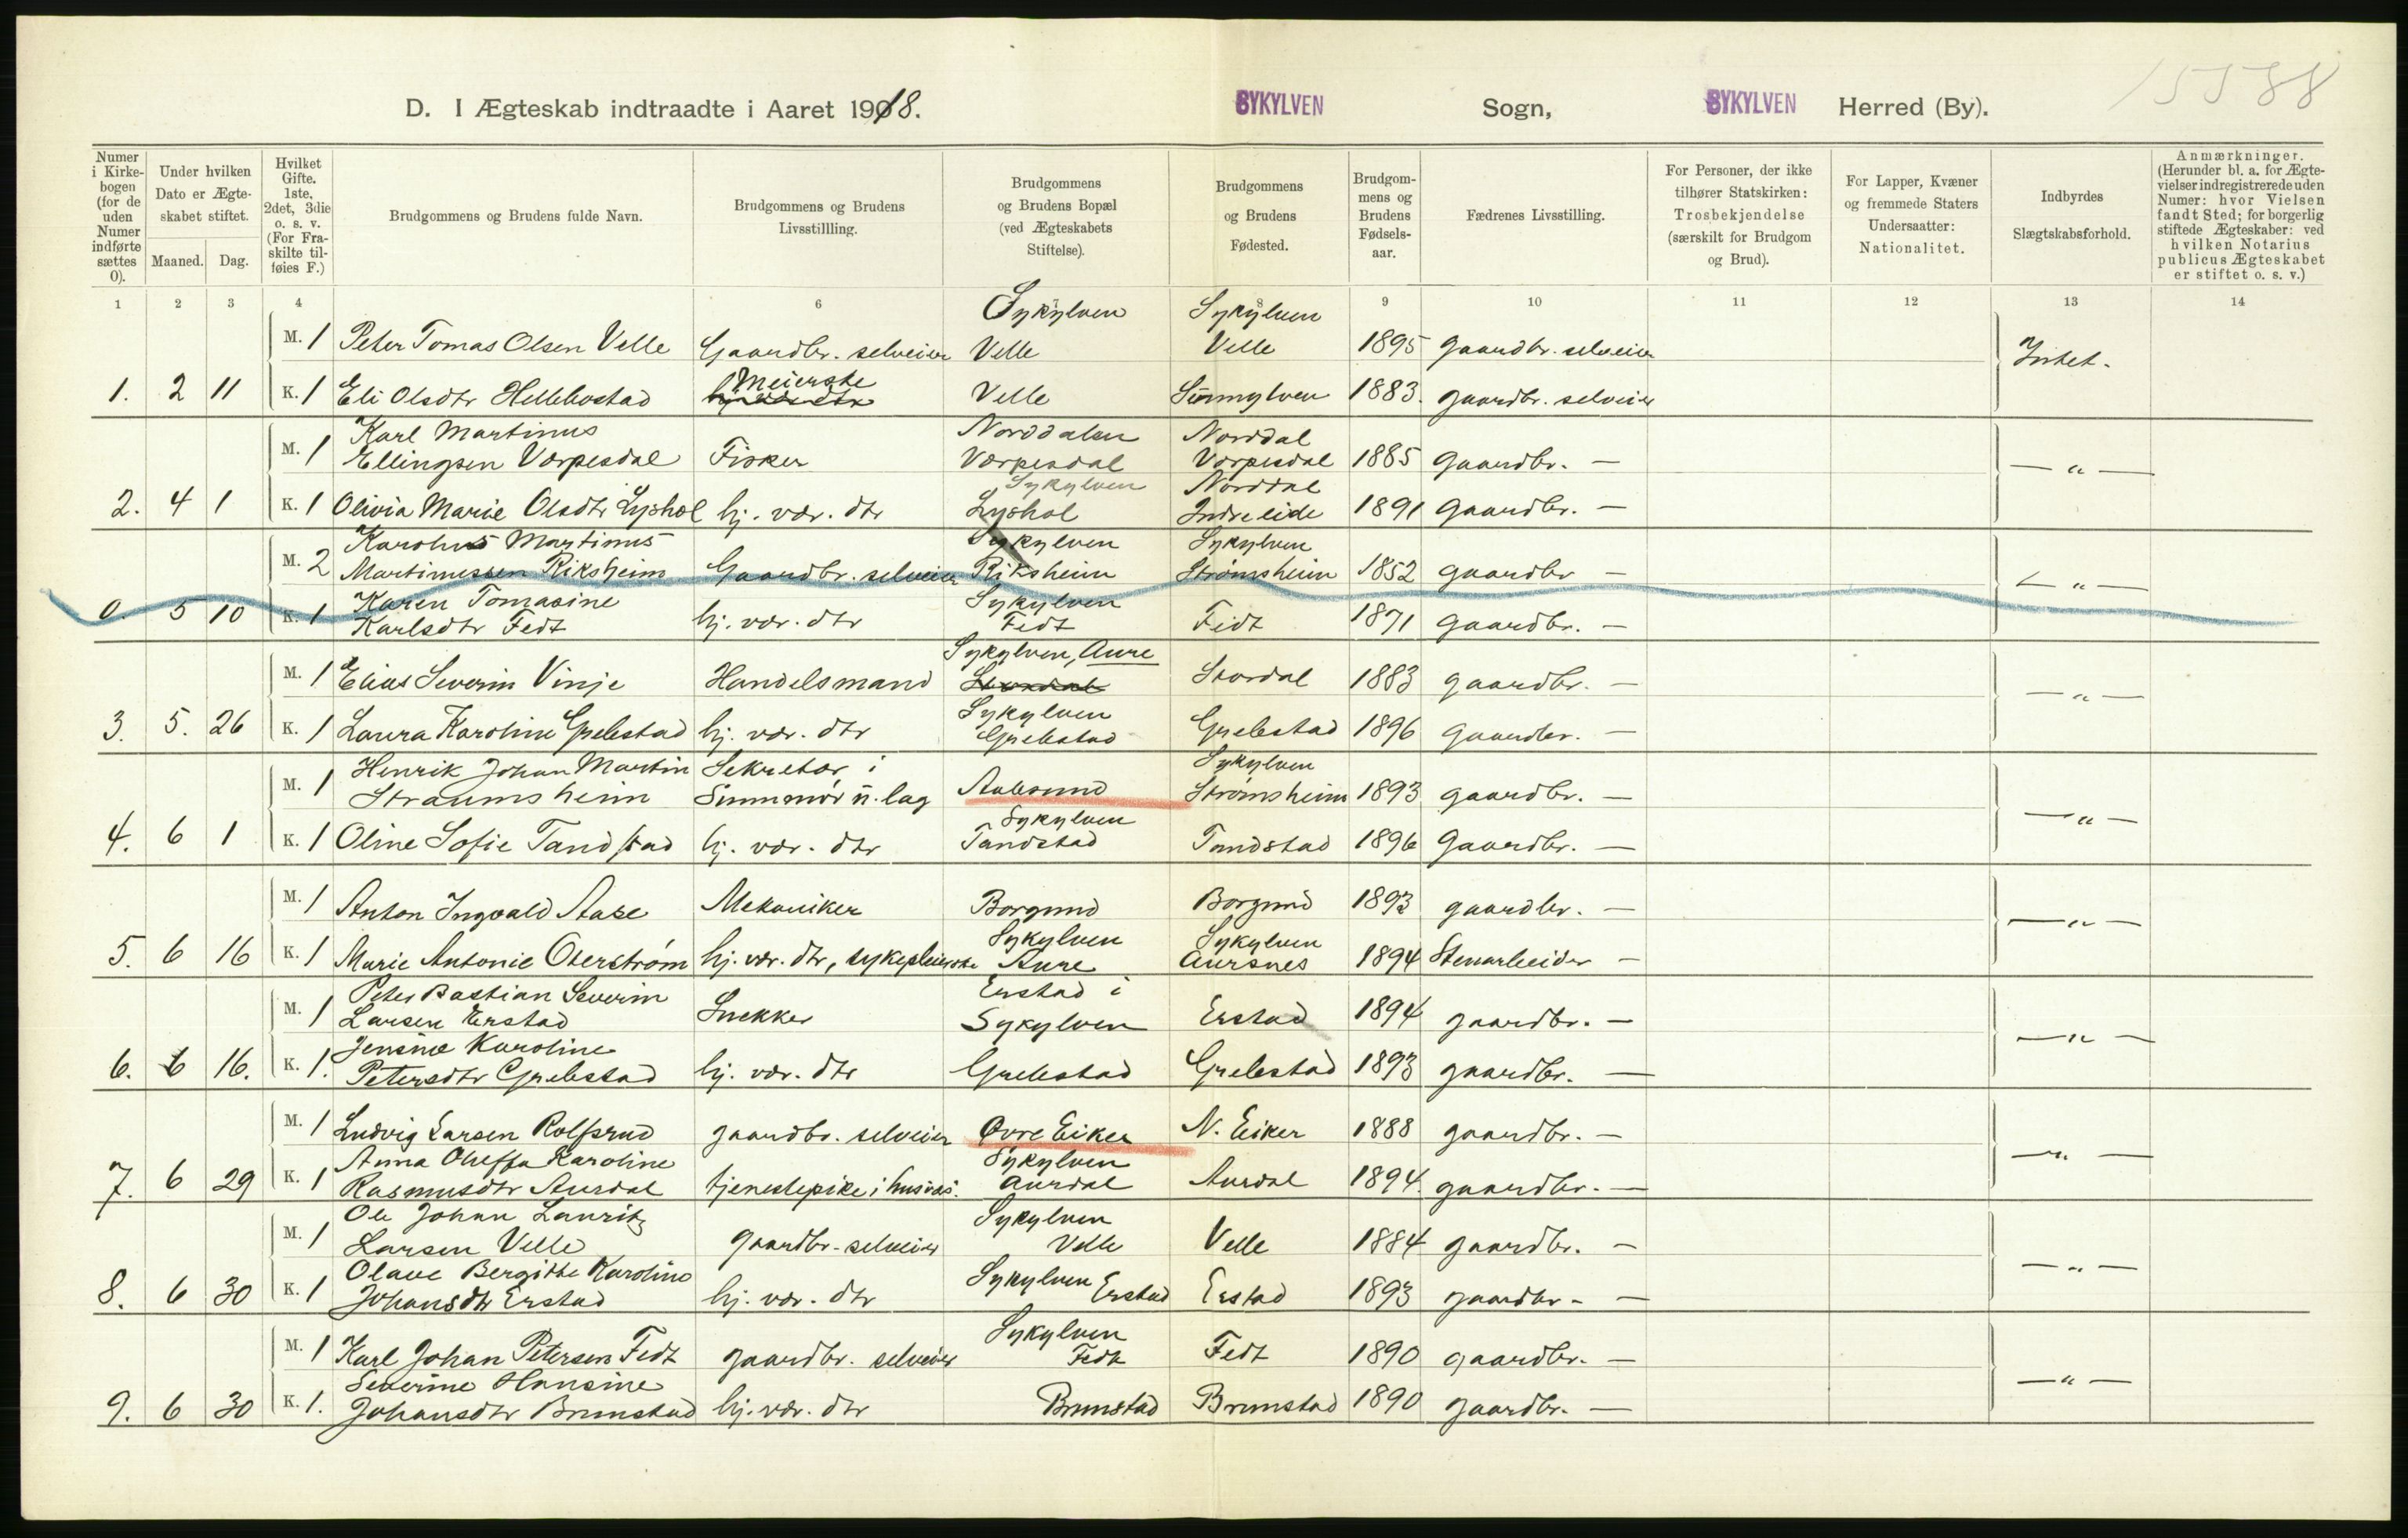 15588
D. I Ægteskab indtraadte i Aaret 1918. SYKYLVEN Sogn, SYKYLVEN Herred (By).
Numer i Kirkebogen (for de uden Numer indførte sættes 0).
Under hvilken Dato er Ægteskabet stiftet.
Maaned. Dag.
Hvilket Gifte. 1ste, 2det, 3die o. s. v. (For Fraskilte tilføies F.)
Brudgommens og Brudens fulde Navn.
Brudgommens og Brudens Livsstillling.
Brudgommens og Brudens Bopæl (ved Ægteskabets Stiftelse).
Brudgommens og Brudens Fødested.
Brudgommens og Brudens Fødselsaar.
Fædrenes Livsstilling.
For Personer, der ikke tilhører Statskirken: Trosbekjendelse (særskilt for Brudgom og Brud).
For Lapper, Kvæner og fremmede Staters Undersaatter: Nationalitet.
Indbyrdes Slægtskabsforhold.
Anmærkninger. (Herunder bl. a. for Ægtevielser indregistrerede uden Numer: hvor Vielsen fandt Sted; for borgerlig stiftede Ægteskaber: ved hvilken Notarius publicus Ægteskabet er stiftet o. s. v.)
1 2 3 4 6 7 8 9 10 11 12 13 14
M. 1 Peter Tomas Olsen Velle Gaardbr. selveier Sykylven Velle Sykylven Velle 1895 gaardbr. selveier Intet.
1. 2 11 K. 1 Eli Olsdtr Hellebostad Meierske Velle Sunnylven 1883. gaardbr. selveier
M. 1 Karl Martinus Ellingsen Varpesdal Fisker Norddalen Varpesdal Norddal Varpesdal 1885 gaardbr. — — „ —
2. 4 1 K. 1 Olivia Marie Olsdtr Lyshol hj. vær. dtr Sykylven Lyshol Norddal Indreeide 1891 gaardbr. —
M. 2 Karolus Martinus Martinussen Riksheim Gaardbr. selveier Sykylven Riksheim Sykylven Strømsheim 1852 gaardbr — — „ —
0. 5 10 K. 1 Karen Tomasine Karlsdtr Fedt hj. vær. dtr Sykylven Fedt Fedt 1871 gaardbr. —
M. 1 Elias Severin Vinje Handelsmand Sykylven, Aure Stordal Stordal 1883 gaardbr. — — „ —
3. 5. 26 K. 1 Laura Karoline Grebstad hj. vær. dtr Sykylven Grebstad Grebstad 1896 gaardbr. —
M. 1 Henrik Johan Martin Straumsheim Sekretær i Sunnmør u. lag Aalesund Sykylven Strømsheim 1893 gaardbr. — — „ —
4. 6 1 K. 1 Oline Sofie Tandstad hj. vær. dtr Sykylven Tandstad Tandstad 1896 gaardbr. —
M. 1 Anton Ingvald Aase Mekaniker Borgund Borgund 1893 gaardbr. — — „ —
5. 6 16 K. 1 Marie Antonie Oterstrøm hj. vær. dtr, sykepleierske Sykylven Aure Sykylven Aursnes 1894 Stenarbeider —
M. 1 Peter Bastian Severin Larsen Erstad Snekker Erstad i Sykylven Erstad 1894 gaardbr. — — „ —
6. 6 16. K. 1. Jensine Karoline Petersdtr Grebstad hj. vær. dtr Grebstad Grebstad 1893 gaardbr. —
M. 1 Ludvig Larsen Rolfsrud gaardbr. selveier Øvre Eiker N. Eiker 1888 gaardbr. — — „ —
7. 6 29 K. 1 Anna Oleffa Karoline Rasmusdtr Aurdal tjenestepike i husvæs. Sykylven Aurdal Aurdal 1894. gaardbr. —
M. 1 Ole Johan Lauritz Larsen Velle gaardbr. selveier Sykylven Velle Velle 1884 gaardbr. — — „ —
8. 6 30 K. 1 Olave Bergitte Karoline Johansdtr Erstad hj. vær. dtr Sykylven Erstad Erstad 1893 gaardbr. —
M. 1 Karl Johan Petersen Fedt gaardbr. selveier Sykylven Fedt Fedt 1890 gaardbr. — — „ —
9. 6 30 K. 1. Severine Hansine Johansdtr Brunstad hj. vær. dtr Brunstad Brunstad 1890 gaardbr. —